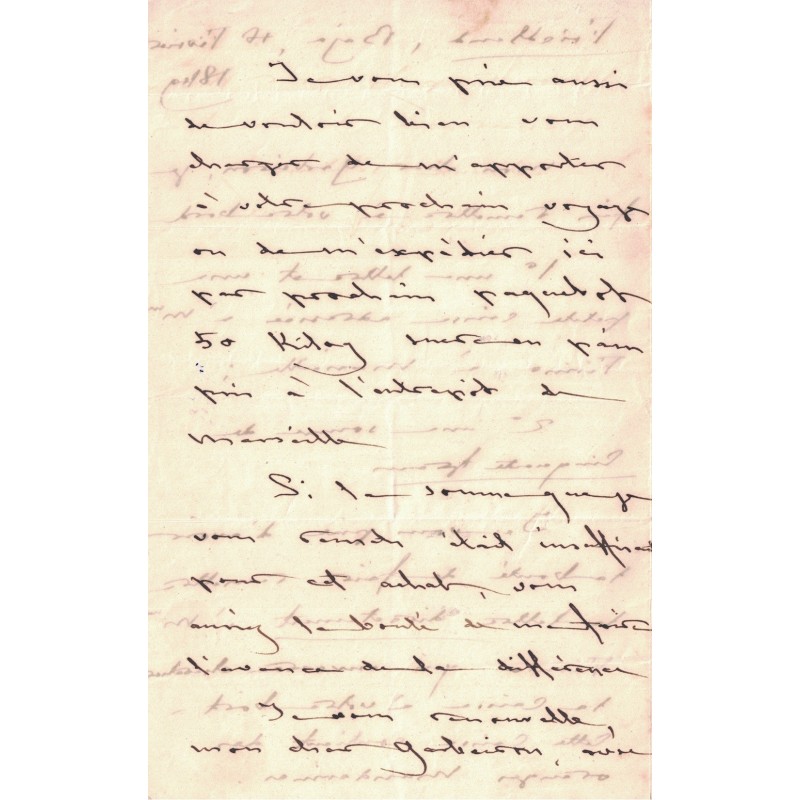 Je vous prie aussi
de vouloir bien vous
charger de m'apporter
à votre prochain voyage
ou de m'expédier ici
par prochain paquebot
50 Kilog sucre en pain
pris à l'entrepôt de
Marseille
Si la somme que je
vous remets était insuffisante
pour cet achat, vous
auriez la bonté de me faire
l'avance de la différence
Je vous renouvelle,
mon cher